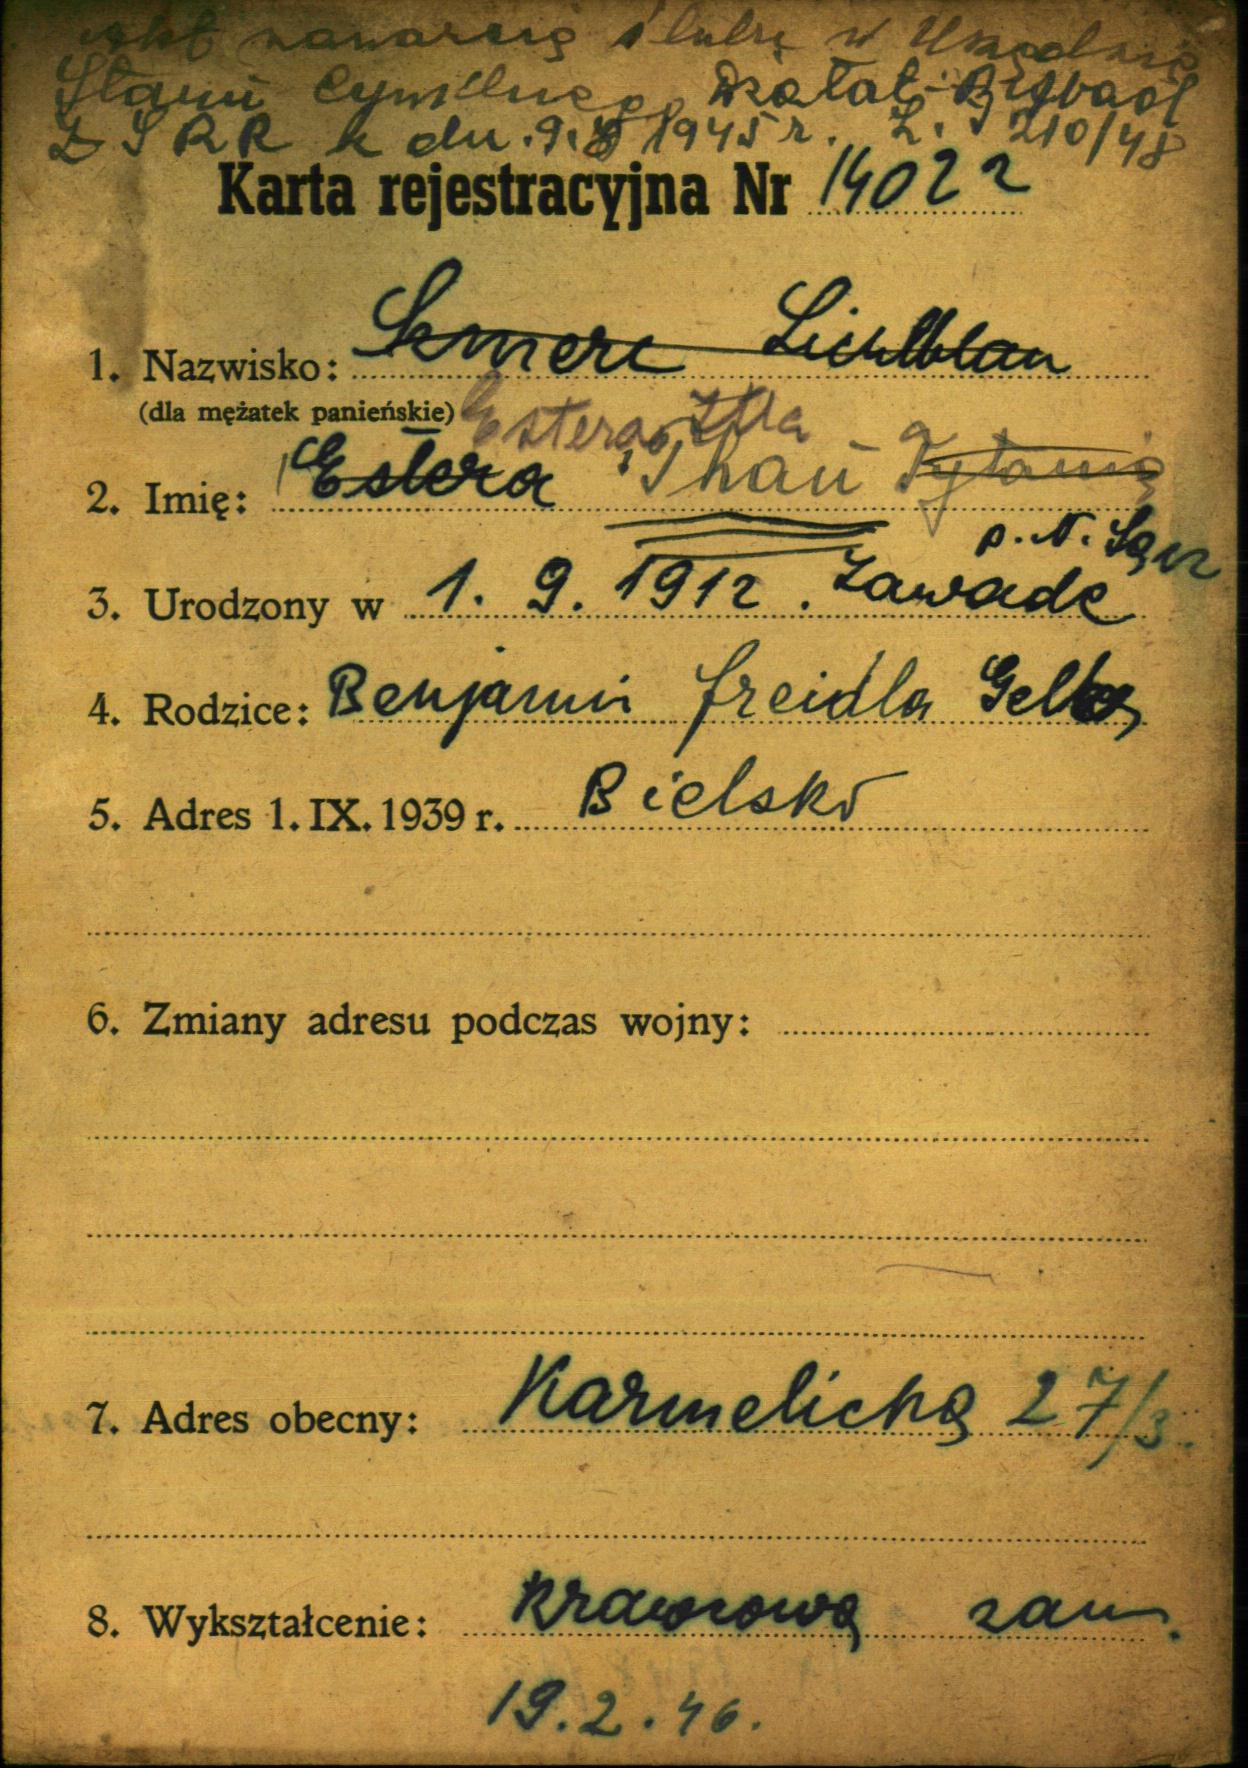 akt zawarcia ślubu w Urzędzie
Stanu Cywilnego
ZSRR k dn. 9. 1945 r. L. 210/48
Karta rejestracyjna Nr 14022
1. Nazwisko: Szmerc Lichtblau
(dla mężatek panieńskie) Estera Itla
2. Imię: Estera Thau
p. N. Sącz
3. Urodzony w 1. 9. 1912. Zawada
4. Rodzice: Benjamin Freidla
5. Adres 1. IX. 1939 r. Bielsko
6. Zmiany adresu podczas wojny:
7. Adres obecny: Karmelicka 27/3.
8. Wykształcenie: Krawcowa zaw.
19.2.46.